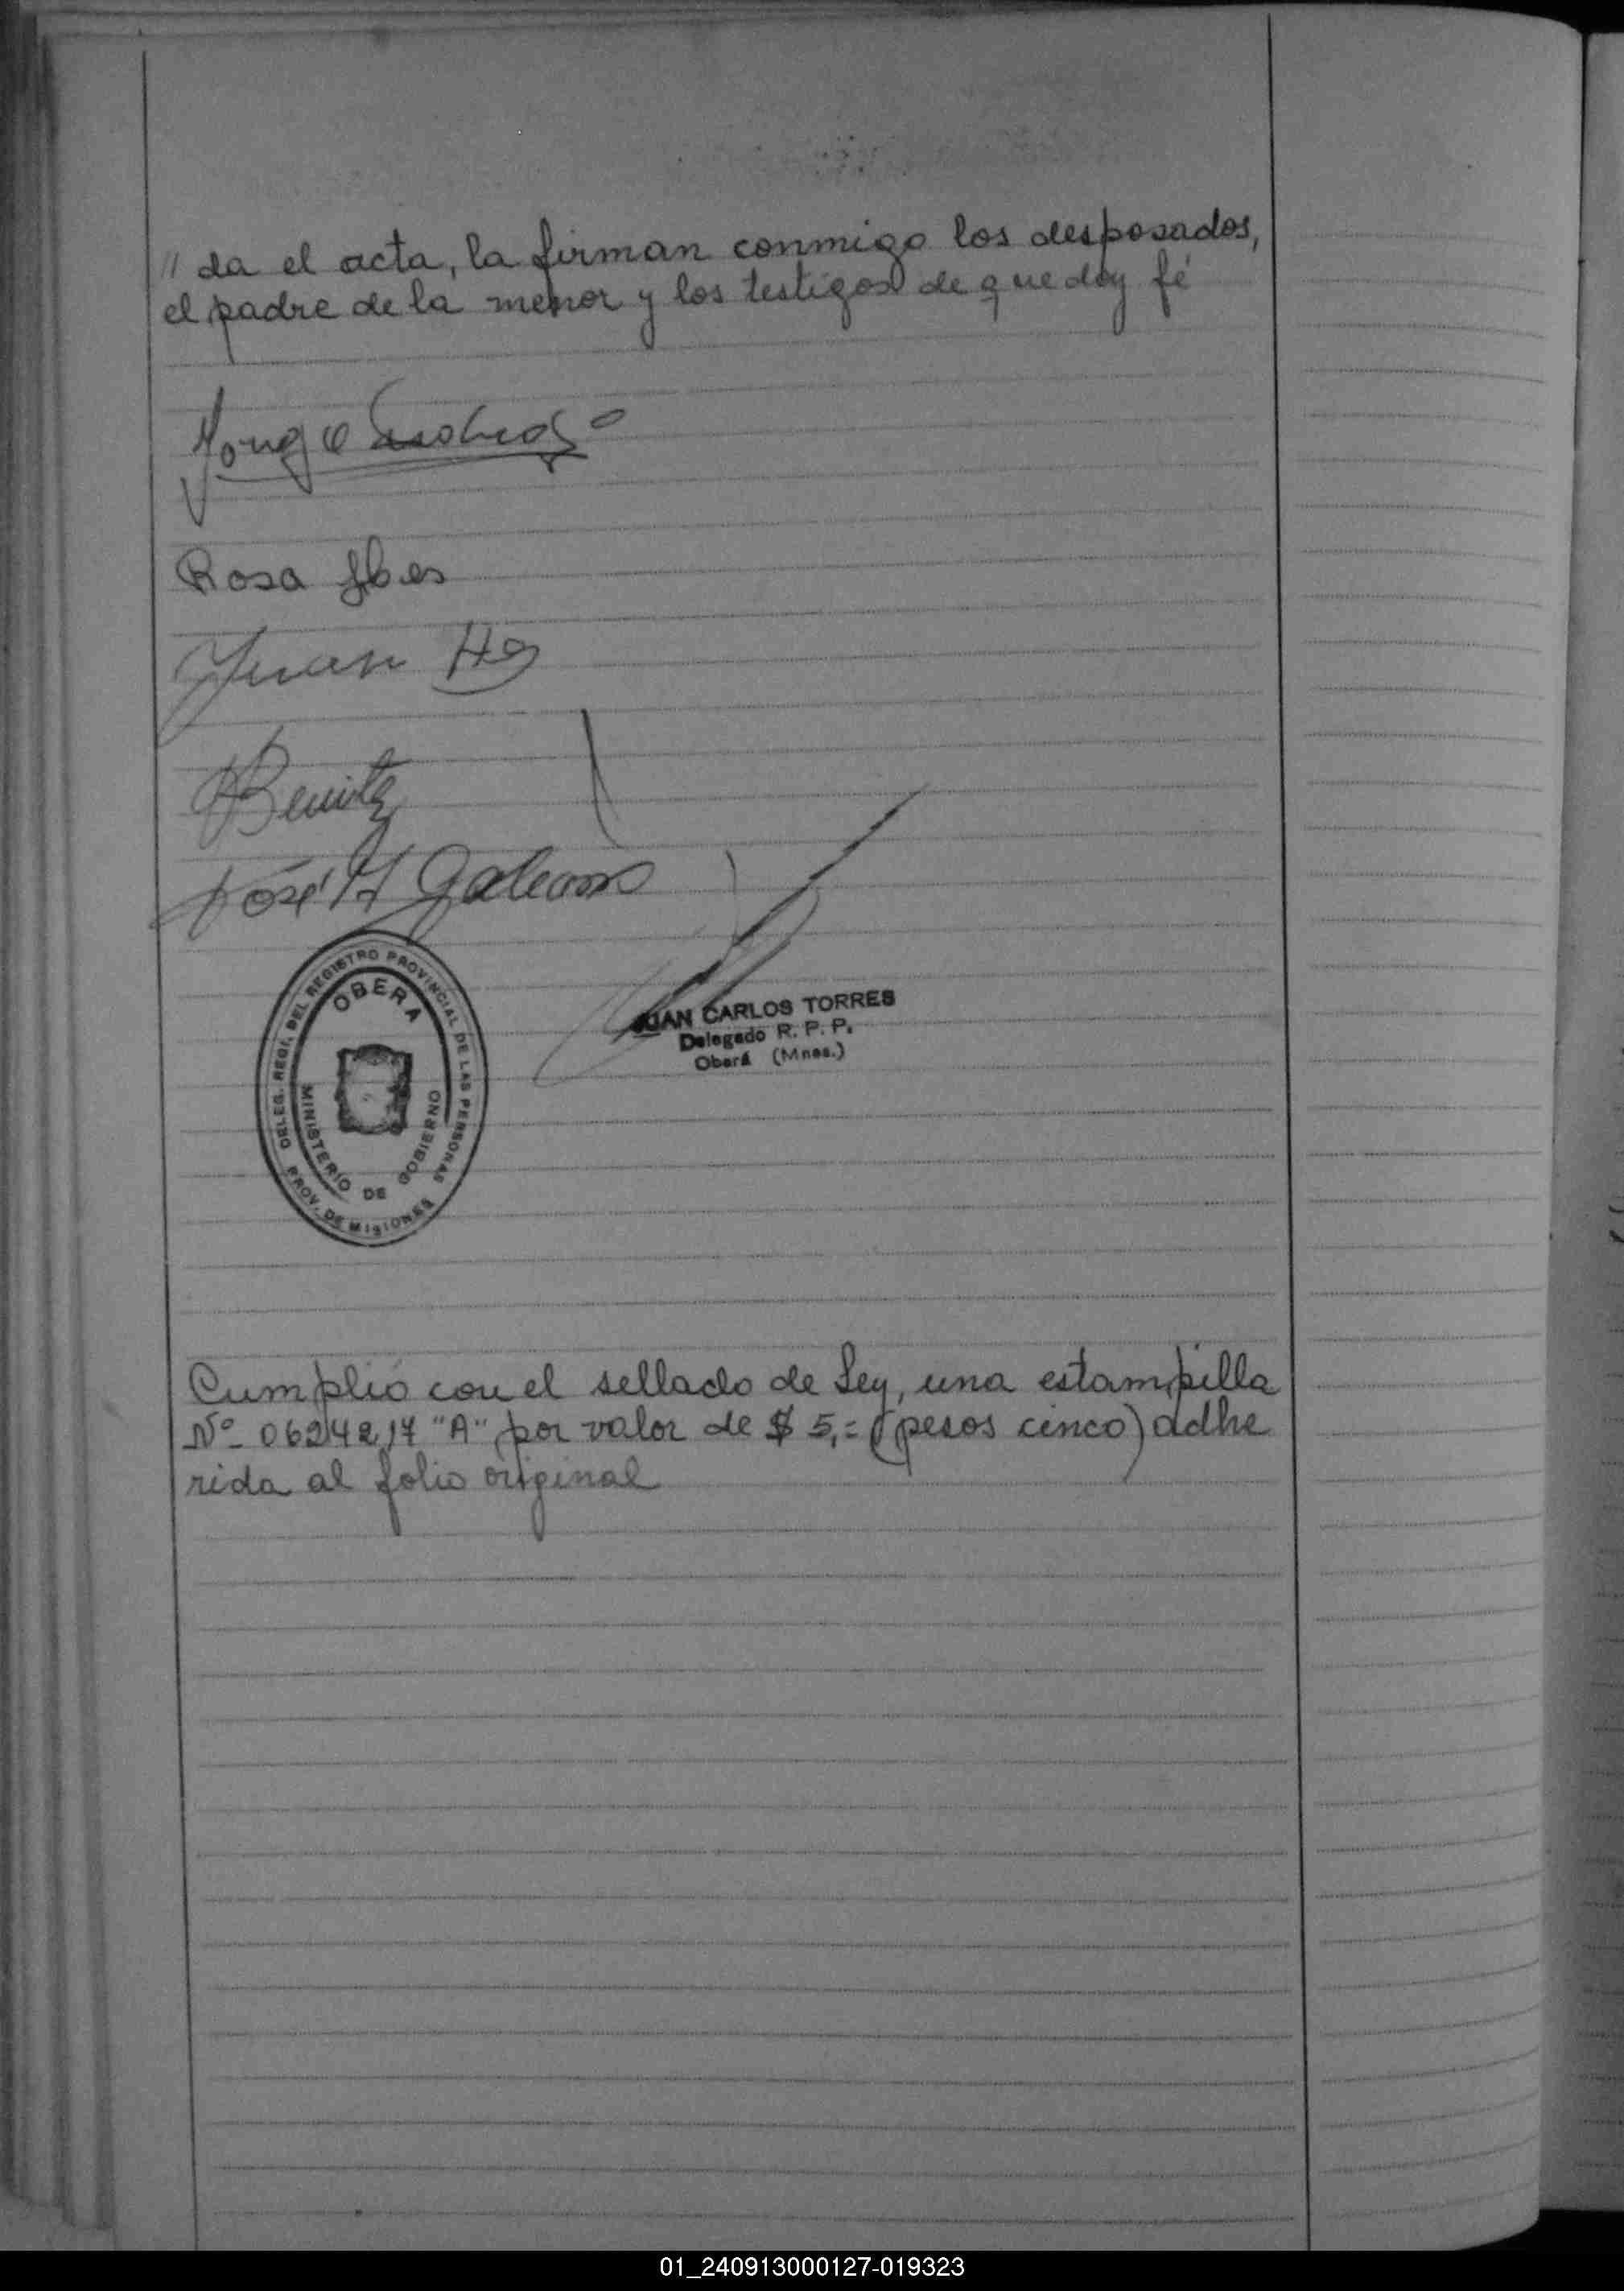 " da el acta, la firman conmigo los desposados,
el padre de la menor y los testigos de que doy fé
Jorge
Rosa
Juan
Benitez
José
DELEG. REGI. DEL REGISTRO PROVINCIAL DE LAS PERSONAS
OBERA
MINISTERIO DE GOBIERNO
PROV. DE MISIONES
JUAN CARLOS TORRES
Delegado R. P. P.
Oberá (Mnes.)
Cumplió con el sellado de Ley, una estampilla
Nº- 0624217 "A" por valor de $ 5,= (pesos cinco) adhe
rida al folio original
01_240913000127-019323